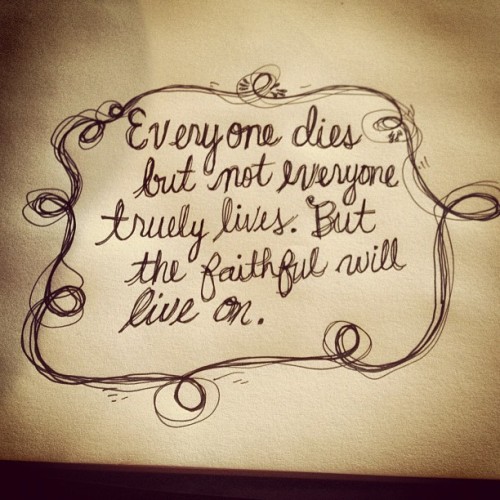 Everyone dies
but not everyone
truely lives. But
the faithful will
live on.